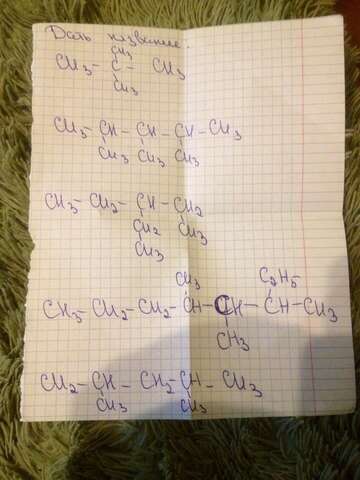 Дать название:
CH3
CH3- C - CH3
CH3
CH3-CH-CH-CH-CH3
CH3 CH3 CH3
CH3-CH2-CH-CH2
CH2 CH3
CH3
CH3 C2H5
CH3-CH2-CH2-CH-CH-CH-CH3
CH3
CH2-CH-CH2-CH-CH3
CH3 CH3